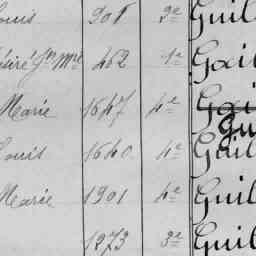 Louis 901 2e Guil
Désiré Jn Mie 462 1e Gail
Marie 1647 4e Gai Gu
Louis 1640 4e Gail
Marie 1901 4e Guil
1273 3e Guil